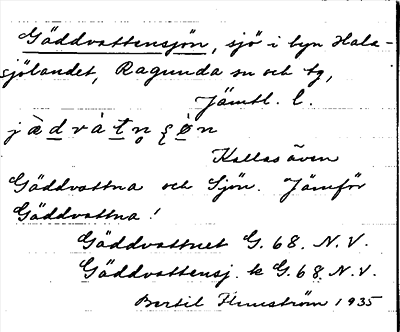 Gäddvattensjön, sjö i byn Hala-
sjölandet, Ragunda sn och tg,
Jämtl. l.
Kallas även
Gäddvattna och Sjön. Jämför
Gäddvattna!
Gäddvattnet G. 68. N.V.
Gäddvattensj. k G. 68 N.V.
Bertil Flemström 1935